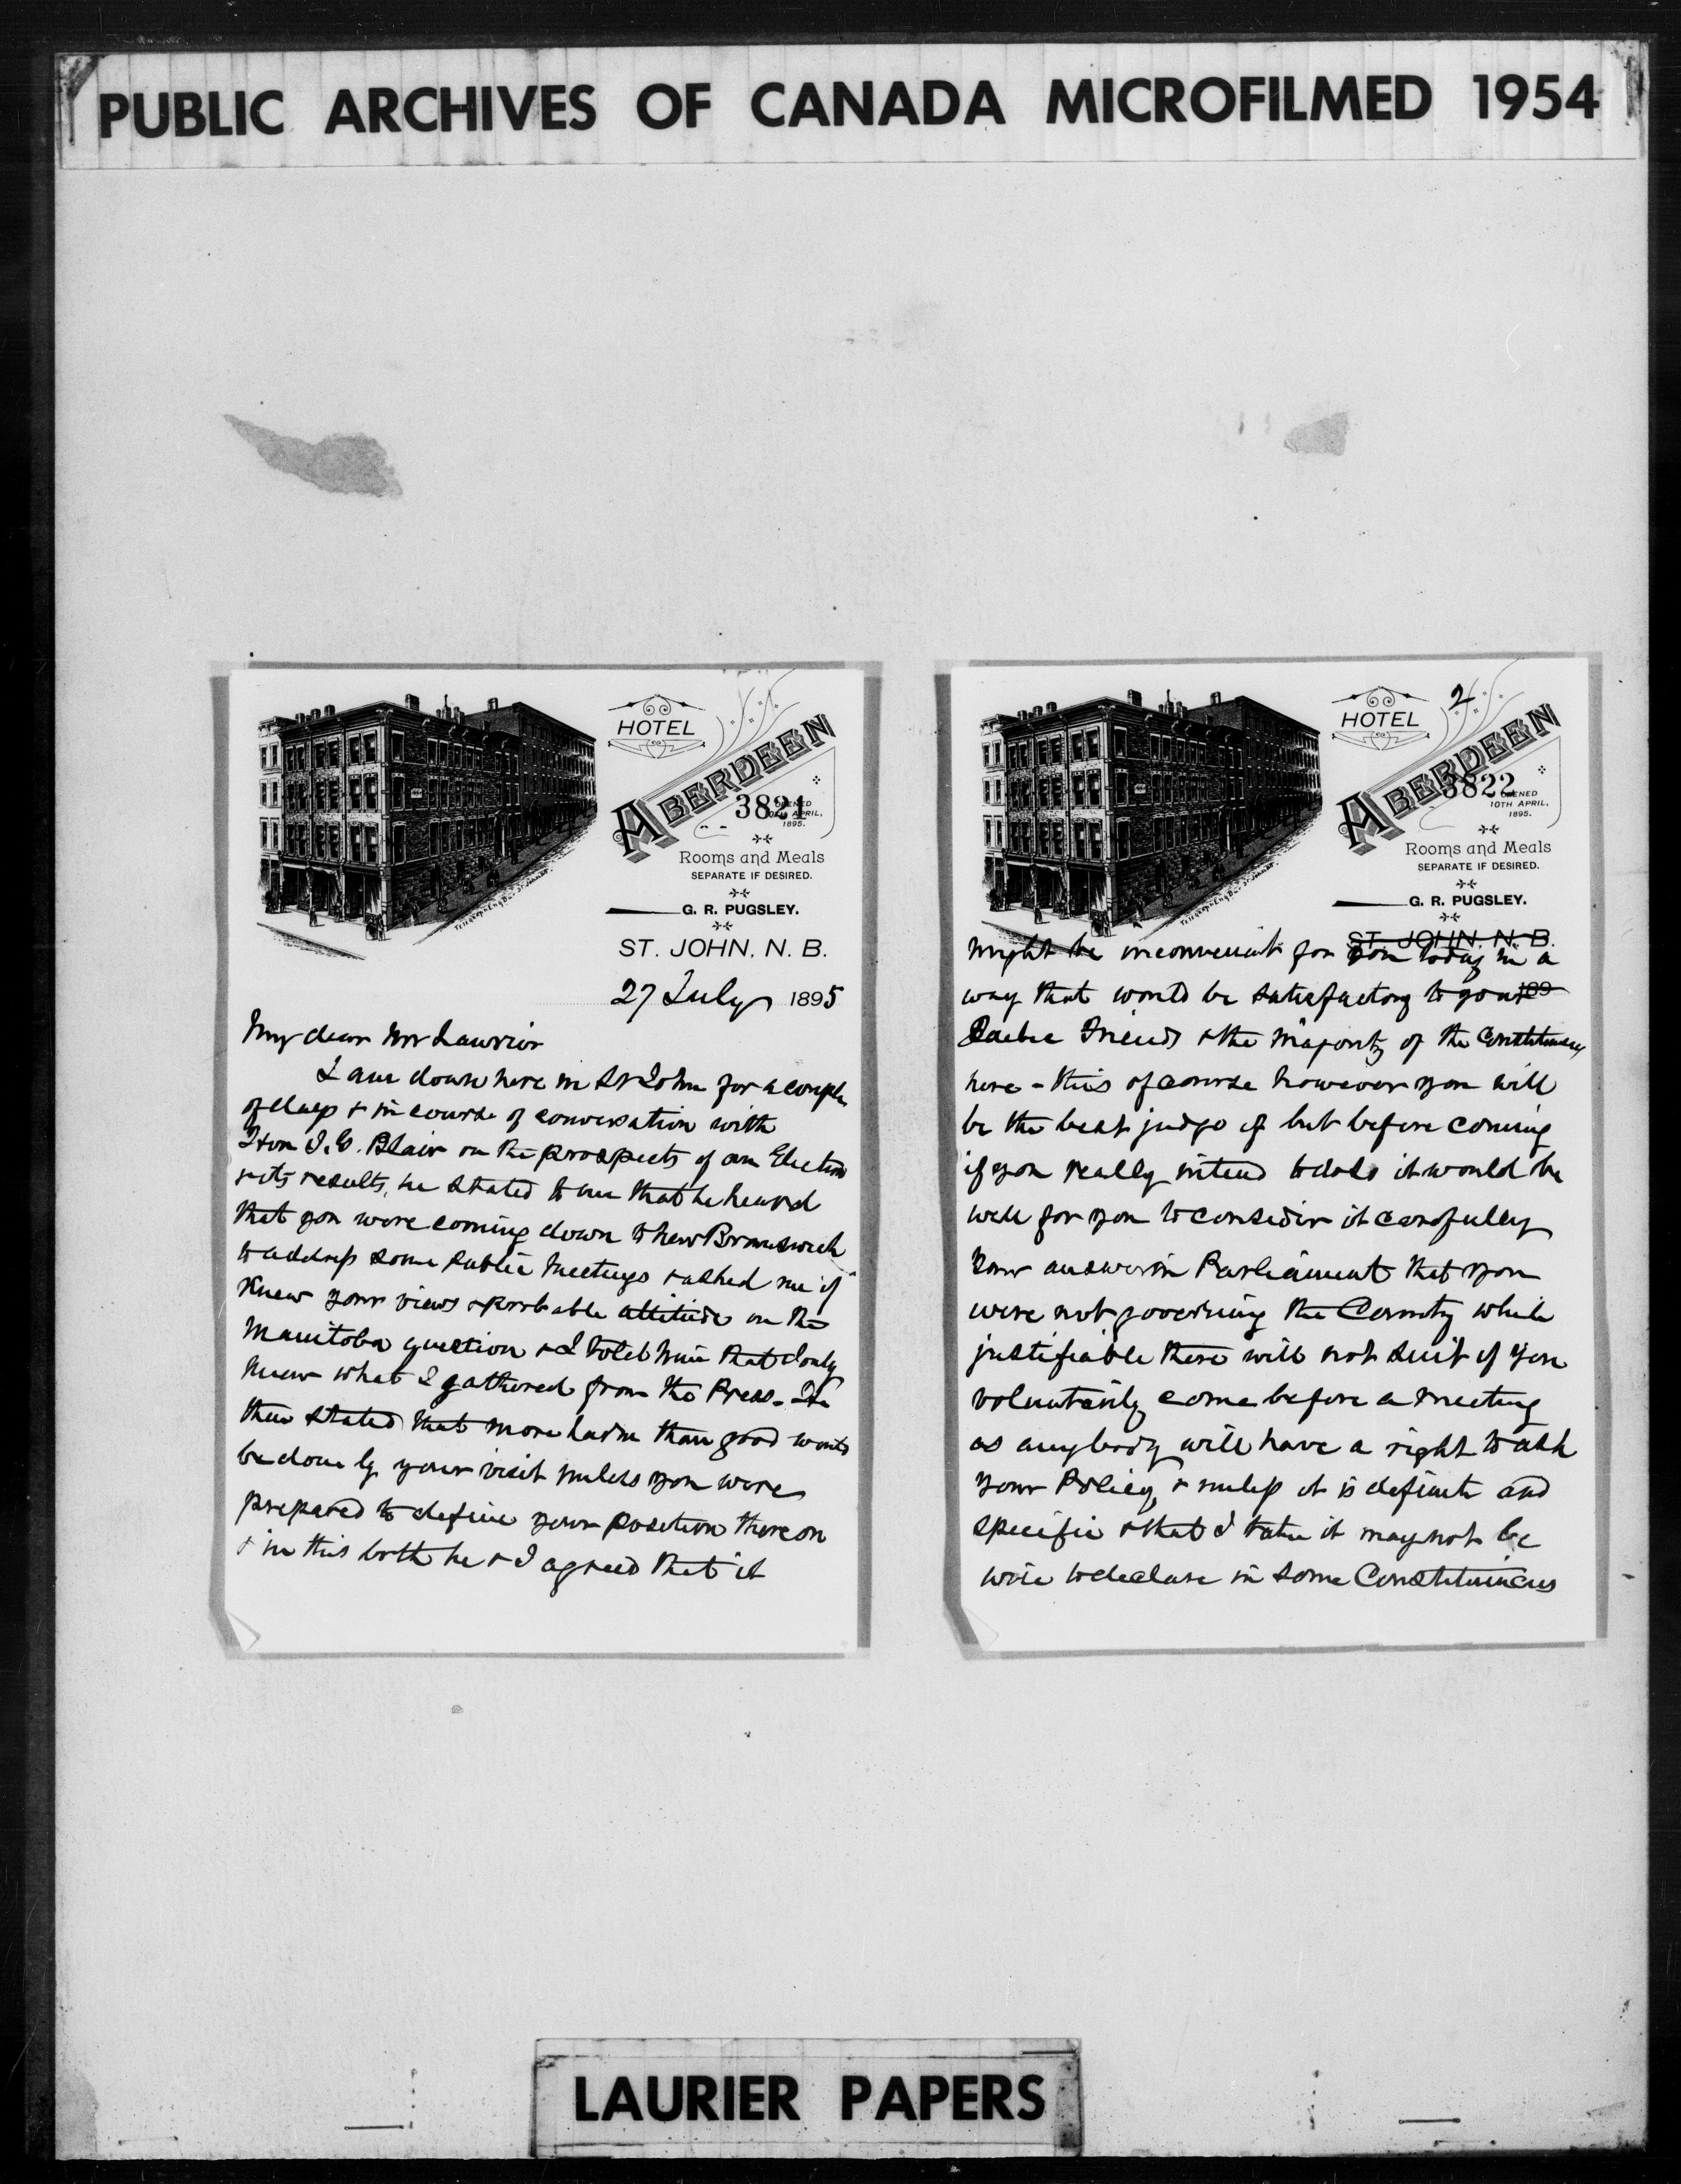 PUBLIC ARCHIVES OF CANADA MICROFILMED 1954
HOTEL
ABERDEEN
3821
OPENED
10TH APRIL,
1895.
Rooms and Meals
SEPARATE IF DESIRED.
G. R. PUGSLEY.
ST. JOHN, N. B.
27 July 1895
My dear Mr Laurier
I am down here in St John for a couple
of days & in course of conversation with
Hon A. G. Blair on the prospects of an Election
& its results, he stated to me that he heard
that you were coming down to New Brunswick
to address some Public Meetings & asked me if
knew your views & probable attitude on the
Manitoba question & I told him that I only
knew what I gathered from the Press - He
then stated that more harm than good would
be done by your visit unless you were
prepared to define your position thereon
& in this both he & I agreed that it
2
HOTEL
ABERDEEN
3822
OPENED
10TH APRIL,
1895.
Rooms and Meals
SEPARATE IF DESIRED.
G. R. PUGSLEY.
ST. JOHN, N. B.
might be inconvenient for you today in a
way that would be satisfactory to your 189
Quebec Friends & the Majority of the Constituency
here - this of course however you will
be the best judge of but before coming
if you really intend to do so it would be
well for you to consider it carefully
Your answer in Parliament that you
were not governing the Country while
justifiable there will not suit if you
voluntarily come before a meeting
as anybody will have a right to ask
your Policy, & unless it is definite and
specific & that I take it may not be
wise to declare in some Constituencies
LAURIER PAPERS